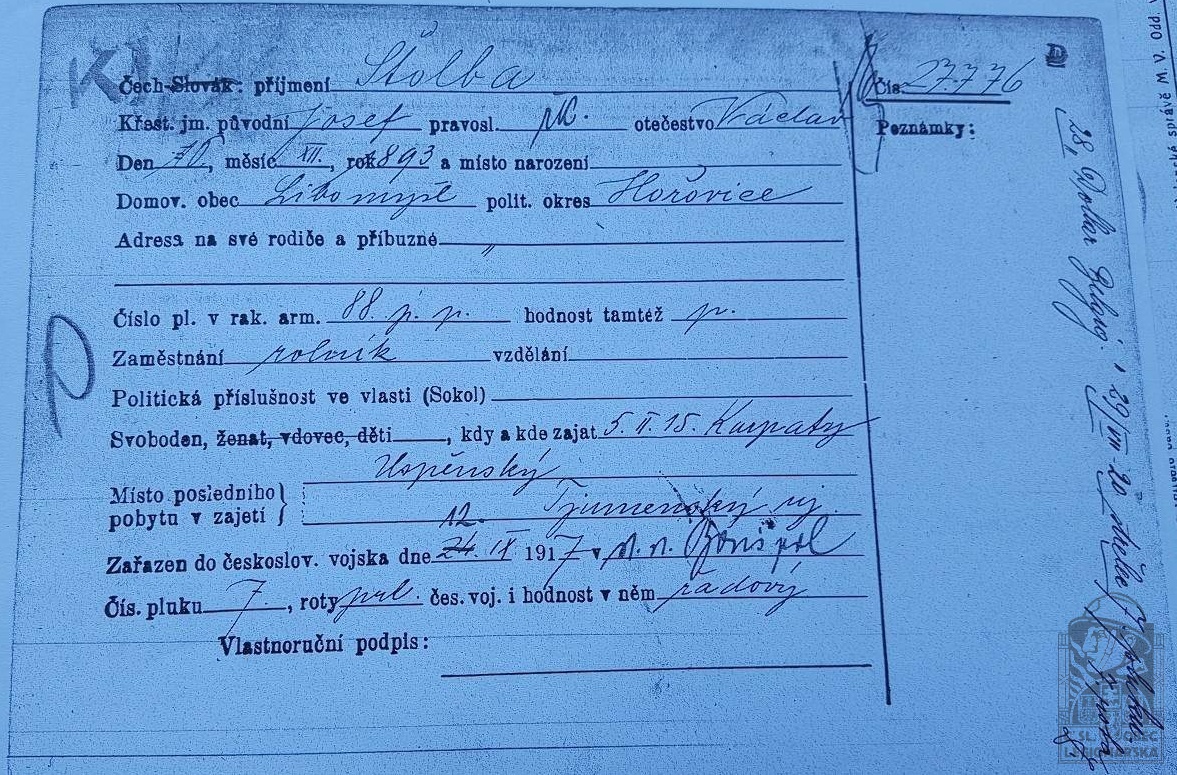 Čech-Slovák: příjmení Štolba
Čís. 27.776
Křest. jm. původní Josef pravosl. otečestvo Václav
Poznámky:
Den, měsíc XII., rok 893 a místo narození
Domov. obec Libomyšl polit. okres Hořovice
Adresa na své rodiče a příbuzné
Číslo pl. v rak. arm. 88. p. p. hodnost tamtéž p.
Zaměstnání rolník vzdělání
Politická příslušnost ve vlasti (Sokol)
Svoboden, ženat, vdovec, děti, kdy a kde zajat 5. II. 15. Karpaty
Uspěnský
Místo posledního
pobytu v zajetí } Tjumenský uj.
12.
Zařazen do českoslov. vojska dne IX 1917 v
Čís. pluku 7., roty čes. voj. i hodnost v něm řadový
Vlastnoruční podpis:
28,
29/VII 20
správě M. V. Odd.
SL. OBEC
LEGIONÁŘSKÁ